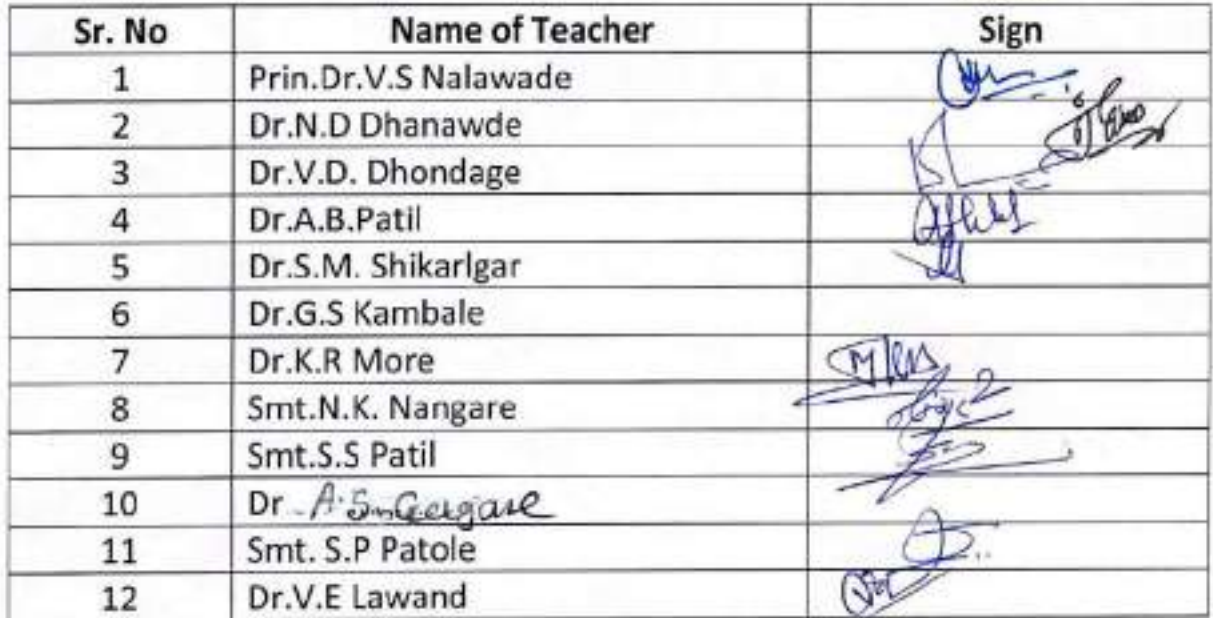 Sr. No Name of Teacher Sign
1 Prin.Dr.V.S Nalawade
2 Dr.N.D Dhanawde
3 Dr.V.D. Dhondage
4 Dr.A.B.Patil
5 Dr.S.M. Shikarlgar
6 Dr.G.S Kambale
7 Dr.K.R More
8 Smt.N.K. Nangare
9 Smt.S.S Patil
10 Dr A.S.
11 Smt. S.P Patole
12 Dr.V.E Lawand